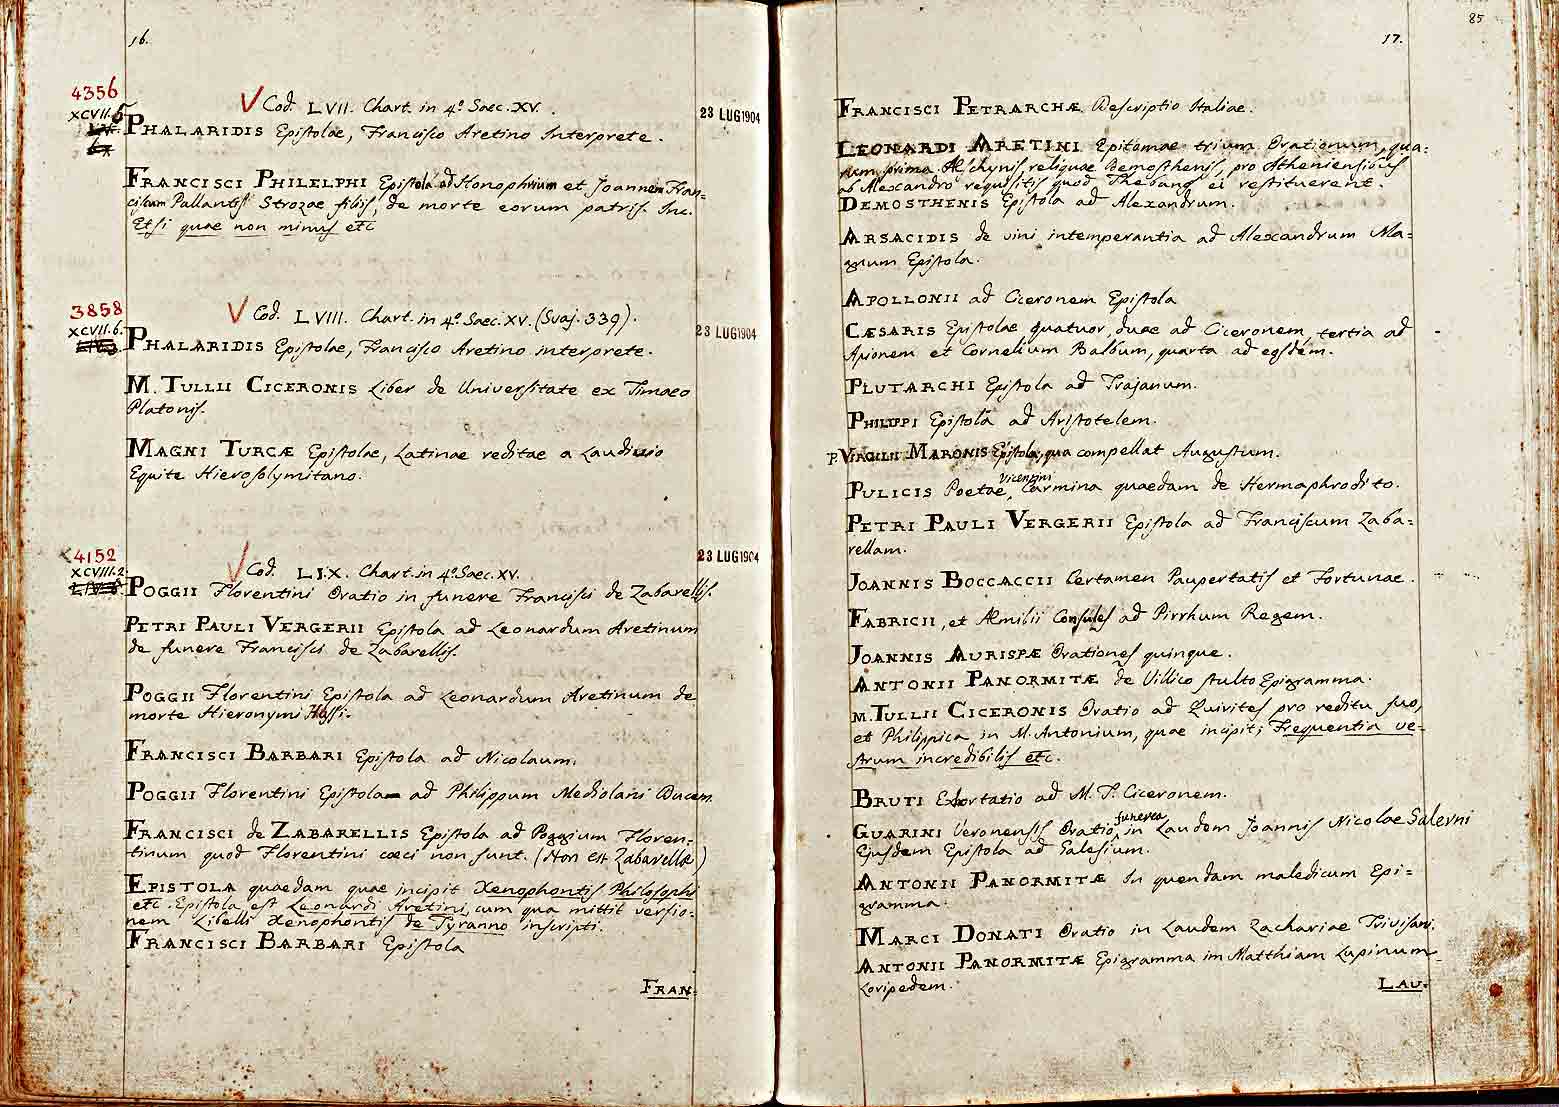 16.
4356
XCVII.5
V Cod. LVII. Chart. in 4.º Saec. XV.
23 LUG 1904
PHALARIDIS Epistolae, Francisco Aretino Interprete.
FRANCISCI PHILELPHI Epistola ad Honophrium et Joannem Fran=
ciscum Pallantis Strozae filiis, de morte eorum patris. Inc.
Etsi quae non minus etc
3858
XCVII.6.
V Cod. LVIII. Chart. in 4.º Saec. XV. (Suaj. 339).
23 LUG 1904
PHALARIDIS Epistolae, Francisco Aretino interprete.
M. TULLII CICERONIS Liber de Universitate ex Timaeo
Platonis.
MAGNI TURCÆ Epistolae, Latinae reditae a Laudivio
Equite Hierosolymitano.
4152
XCVIII.2.
V Cod. LIX. Chart. in 4.º Saec. XV.
23 LUG 1904
POGGII Florentini Oratio in funere Francisci de Zabarellis.
PETRI PAULI VERGERII Epistola ad Leonardum Aretinum
de funere Francisci de Zabarellis.
POGGII Florentini Epistola ad Leonardum Aretinum de
morte Hieronymi Hussi.
FRANCISCI BARBARI Epistola ad Nicolaum.
POGGII Florentini Epistola ad Philippum Mediolani Ducem.
FRANCISCI de ZABARELLIS Epistola ad Poggium Floren=
tinum quod Florentini cæci non sunt. (Non est Zabarellæ)
EPISTOLA quaedam quae incipit Xenophontis Philosophi
etc. Epistola est Leonardi Aretini, cum qua mittit versio=
nem Libelli Xenophontis de Tyranno inscripti.
FRANCISCI BARBARI Epistola
FRAN=
85
17.
FRANCISCI PETRARCHÆ Descriptio Italiae.
LEONARDI ARETINI Epitomae trium Orationum, qua=
rum prima Æschynis, reliquae Demosthenis, pro Atheniensibus
ab Alexandro requisitis quod Thebans ei restituerent.
DEMOSTHENIS Epistola ad Alexandrum.
ARSACIDIS de vini intemperantia ad Alexandrum Ma=
gnum Epistola.
APOLLONII ad Ciceronem Epistola
CÆSARIS Epistolae quatuor, duae ad Ciceronem, tertia ad
Apionem et Cornelium Balbum, quarta ad eosdem.
PLUTARCHI Epistola ad Trajanum.
PHILIPPI Epistola ad Aristotelem.
P. VIRGILII MARONIS Epistola, qua compellat Augustum.
PULICIS Poetae, Vicentini Carmina quaedam de Hermaphrodito.
PETRI PAULI VERGERII Epistola ad Franciscum Zaba=
rellam.
JOANNIS BOCCACCII Certamen Paupertatis et Fortunae.
FABRICII, et Æmilii Consules ad Pirrhum Regem.
JOANNIS AURISPÆ Orationes quinque.
ANTONII PANORMITÆ de Villico stulto Epigramma.
M. TULLII CICERONIS Oratio ad Quirites pro reditu suo,
et Philippica in M. Antonium, quae incipit; Frequentia ve=
strum incredibilis etc.
BRUTI Exhortatio ad M. T. Ciceronem.
GUARINI Veronensis Oratio funerea in Laudem Joannis Nicolae Salerni
Ejusdem Epistola ad Galesium.
ANTONII PANORMITÆ In quendam maledicum Epi=
gramma.
MARCI DONATI Oratio in Laudem Zachariae Trivisani.
ANTONII PANORMITÆ Epigramma in Matthiam Lupinum
Loripedem.
LAU=